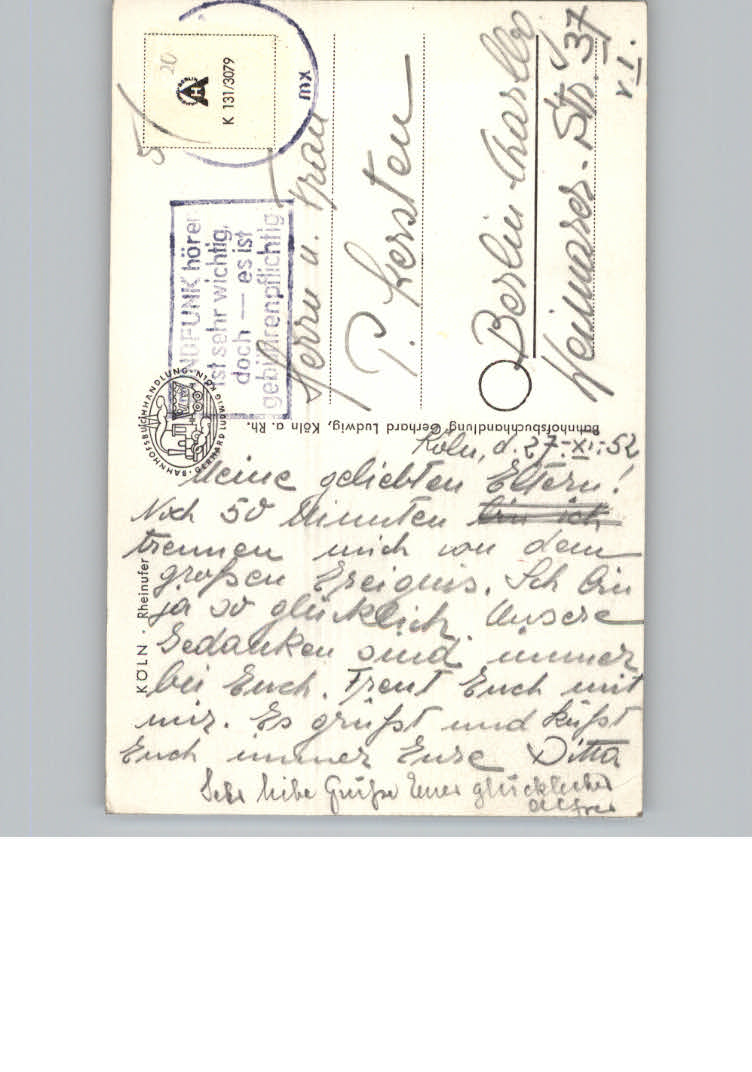 20
BERLIN
H
K 131/3079
5
mx
NDFUNK hören
ist sehr wichtig,
doch — es ist
gebührenpflichtig
Herrn u. Frau
P. Kersten
Berlin-Charlbg
Weimarer-Str. 37
v. I.
BAHNHOFSBUCHHANDLUNG · GERHARD LUDWIG KÖLN
Bahnhofsbuchhandlung Gerhard Ludwig, Köln a. Rh.
KÖLN · Rheinufer
Köln, d. 27.-XI.-52
Meine geliebten Eltern!
Noch 50 Minuten bin ich
trennen mich von dem
großen Ereignis. Ich bin
ja so glücklich. Unsere
Gedanken sind immer
bei Euch. Freut Euch mit
mir. Es grüßt und küßt
Euch immer Eure Ditta
Sehr liebe Grüße Euer glücklicher
Alfred